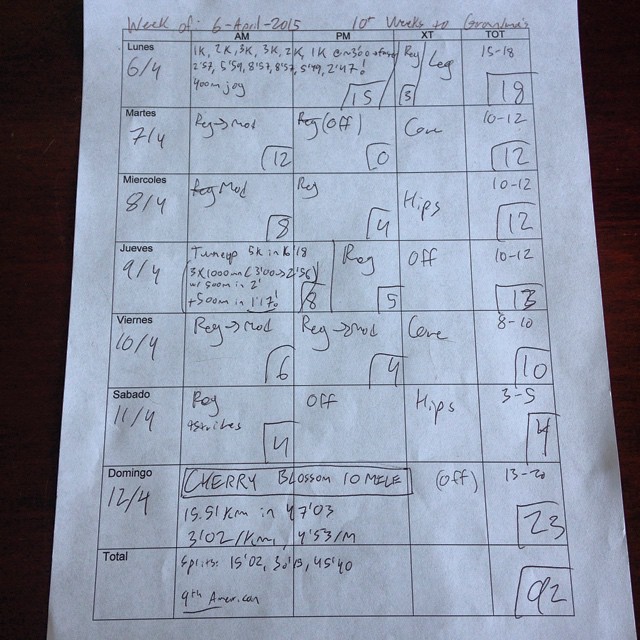 Week of: 6-April-2015 10 Weeks to Grandma's
AM PM XT TOT
Lunes
6/4
1K, 2K, 3K, 3K, 2K, 1K
2'57, 5'59, 8'57, 8'57, 5'49, 2'47!
400m joy
15
Reg
3
Leg
15-18
18
Martes
7/4
Reg→Mod
12
Reg (Off)
0
Core
10-12
12
Miercoles
8/4
Reg Mod
8
Reg
4
Hips
10-12
12
Jueves
9/4
Tuneup 5K in 16'18
(3x1000m (3'00→2'56)
w/ 500m in 2'
+500m in 1'17!)
8
Reg
5
Off
10-12
13
Viernes
10/4
Reg→Mod
6
Reg→Mod
4
Core
8-10
10
Sabado
11/4
Reg
+strides
4
Off
Hips
3-5
4
Domingo
12/4
CHERRY BLOSSOM 10 MILE
15.51 Km in 47'03
3'02/Km, 4'53/M
(Off)
13-20
23
Total
Splits: 15'02, 30'13, 45'40
9th American
92